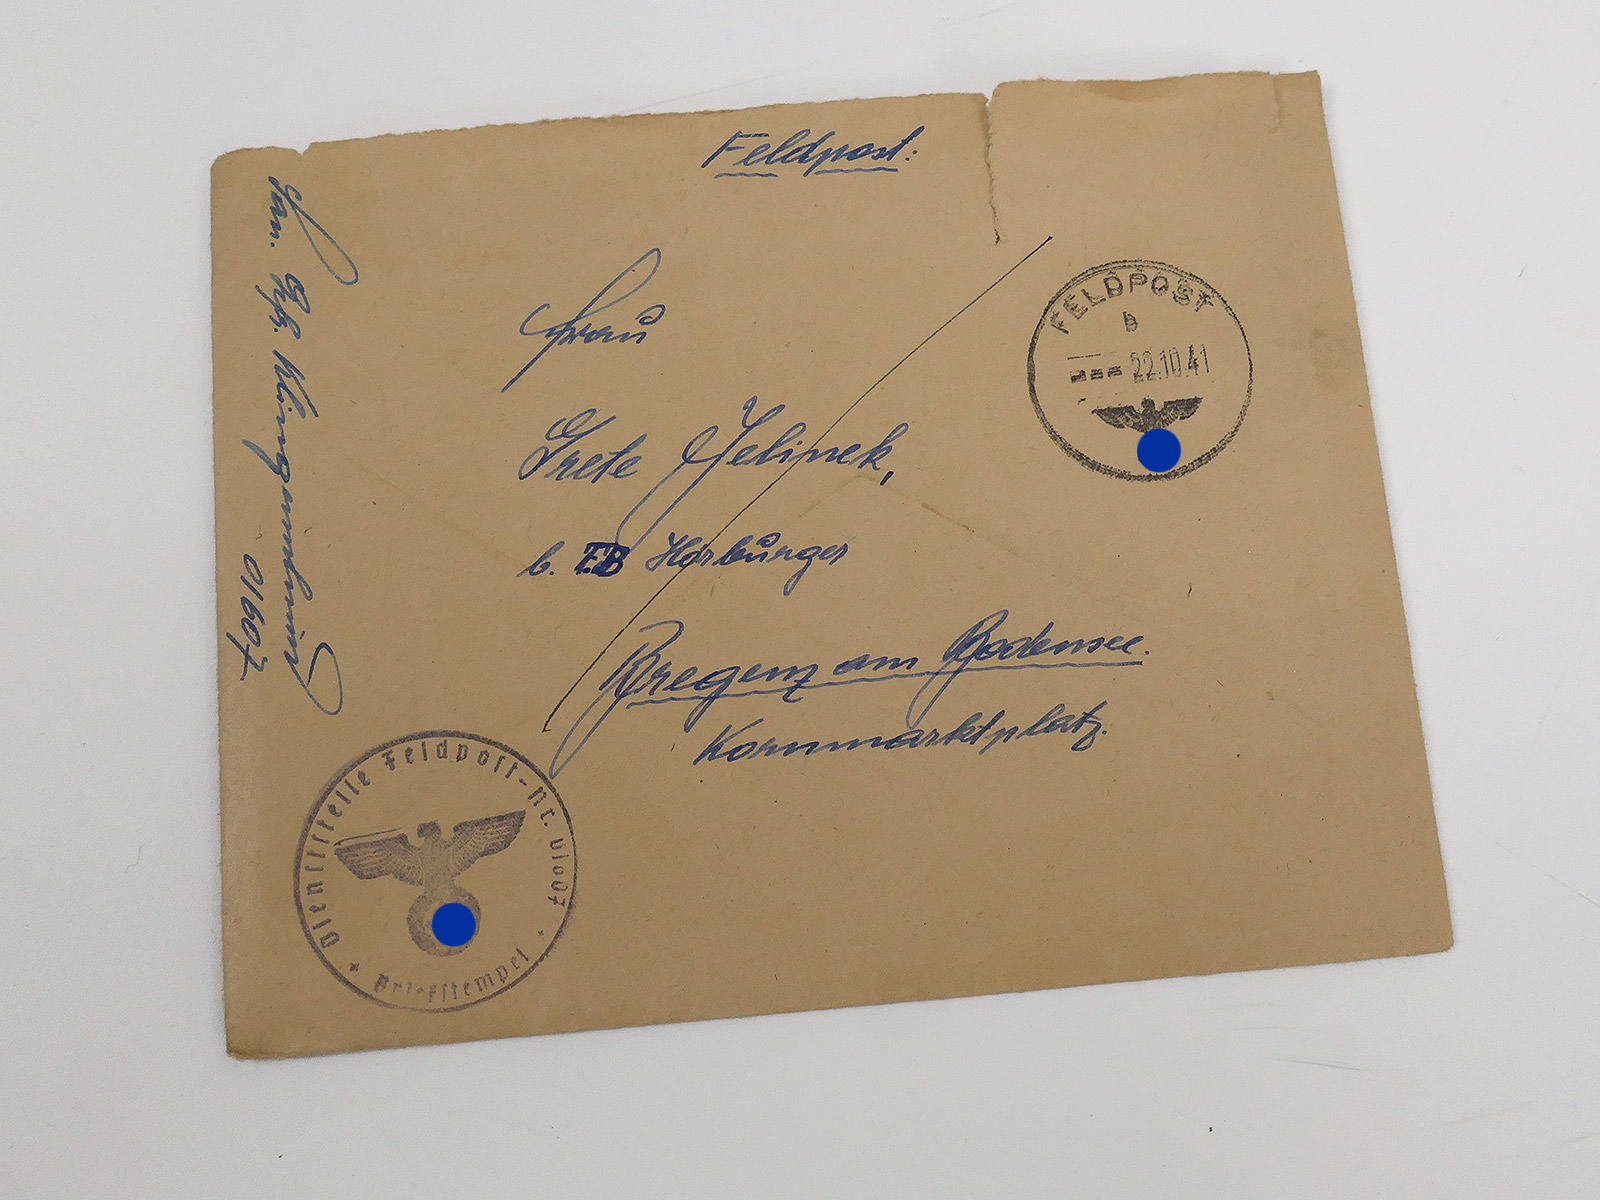 Feldpost:
Frau
Grete Jelinek,
b. Horburger
Bregenz am Bodensee.
Kornmarktplatz.
San. 
01607
FELDPOST
b
22.10.41
Dienststelle Feldpost-Nr. 01607
Briefstempel